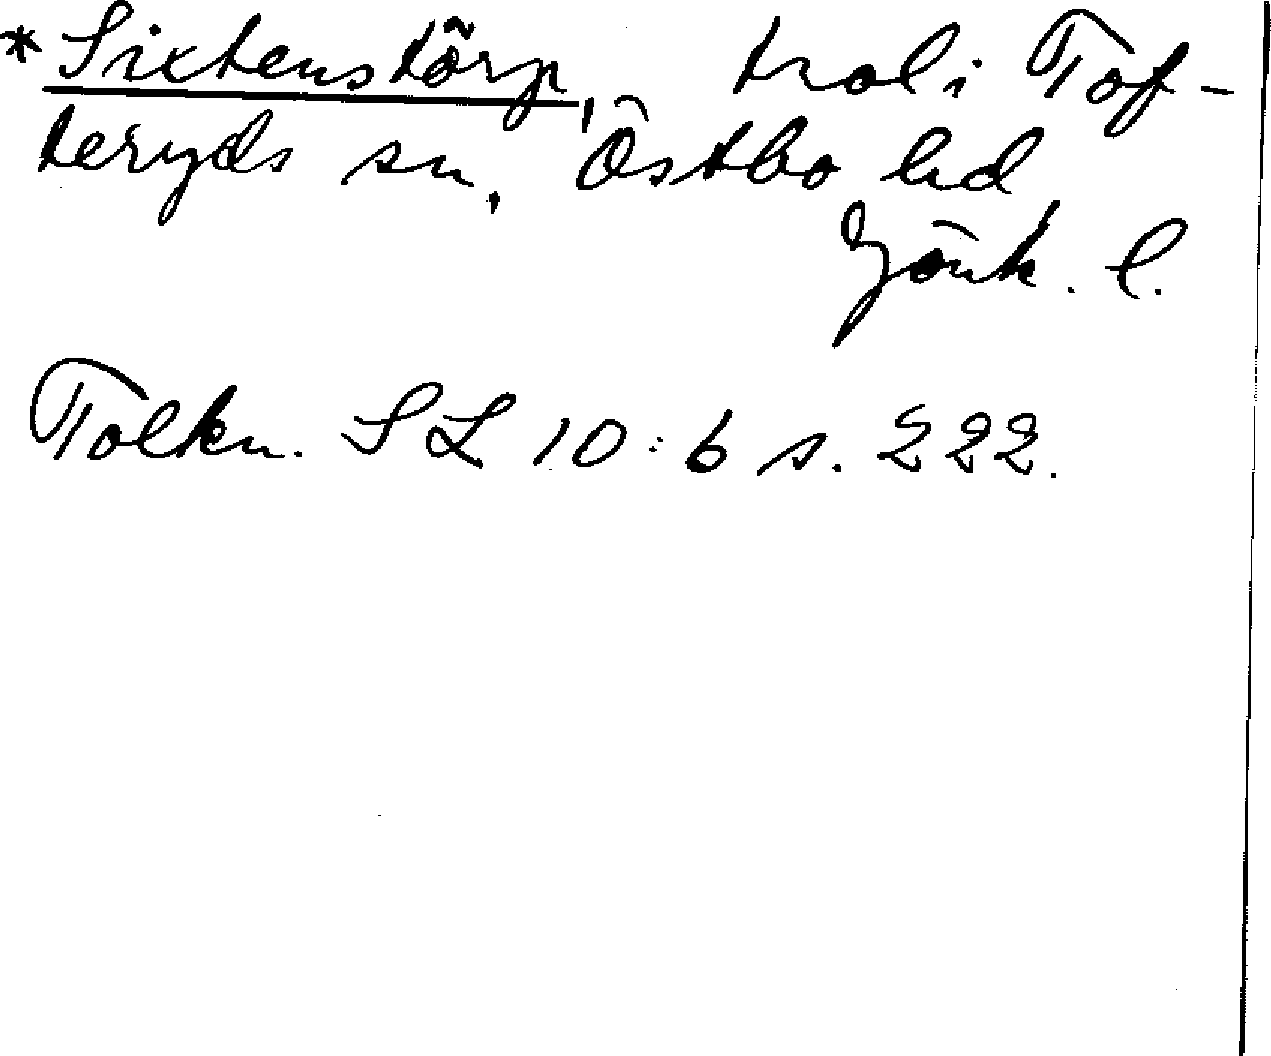 *Sixtenstörp, trol i Tof-
teryds sn, Östbo hd
Jönk. l.
Tolkn. SL 10:6 s. 222.